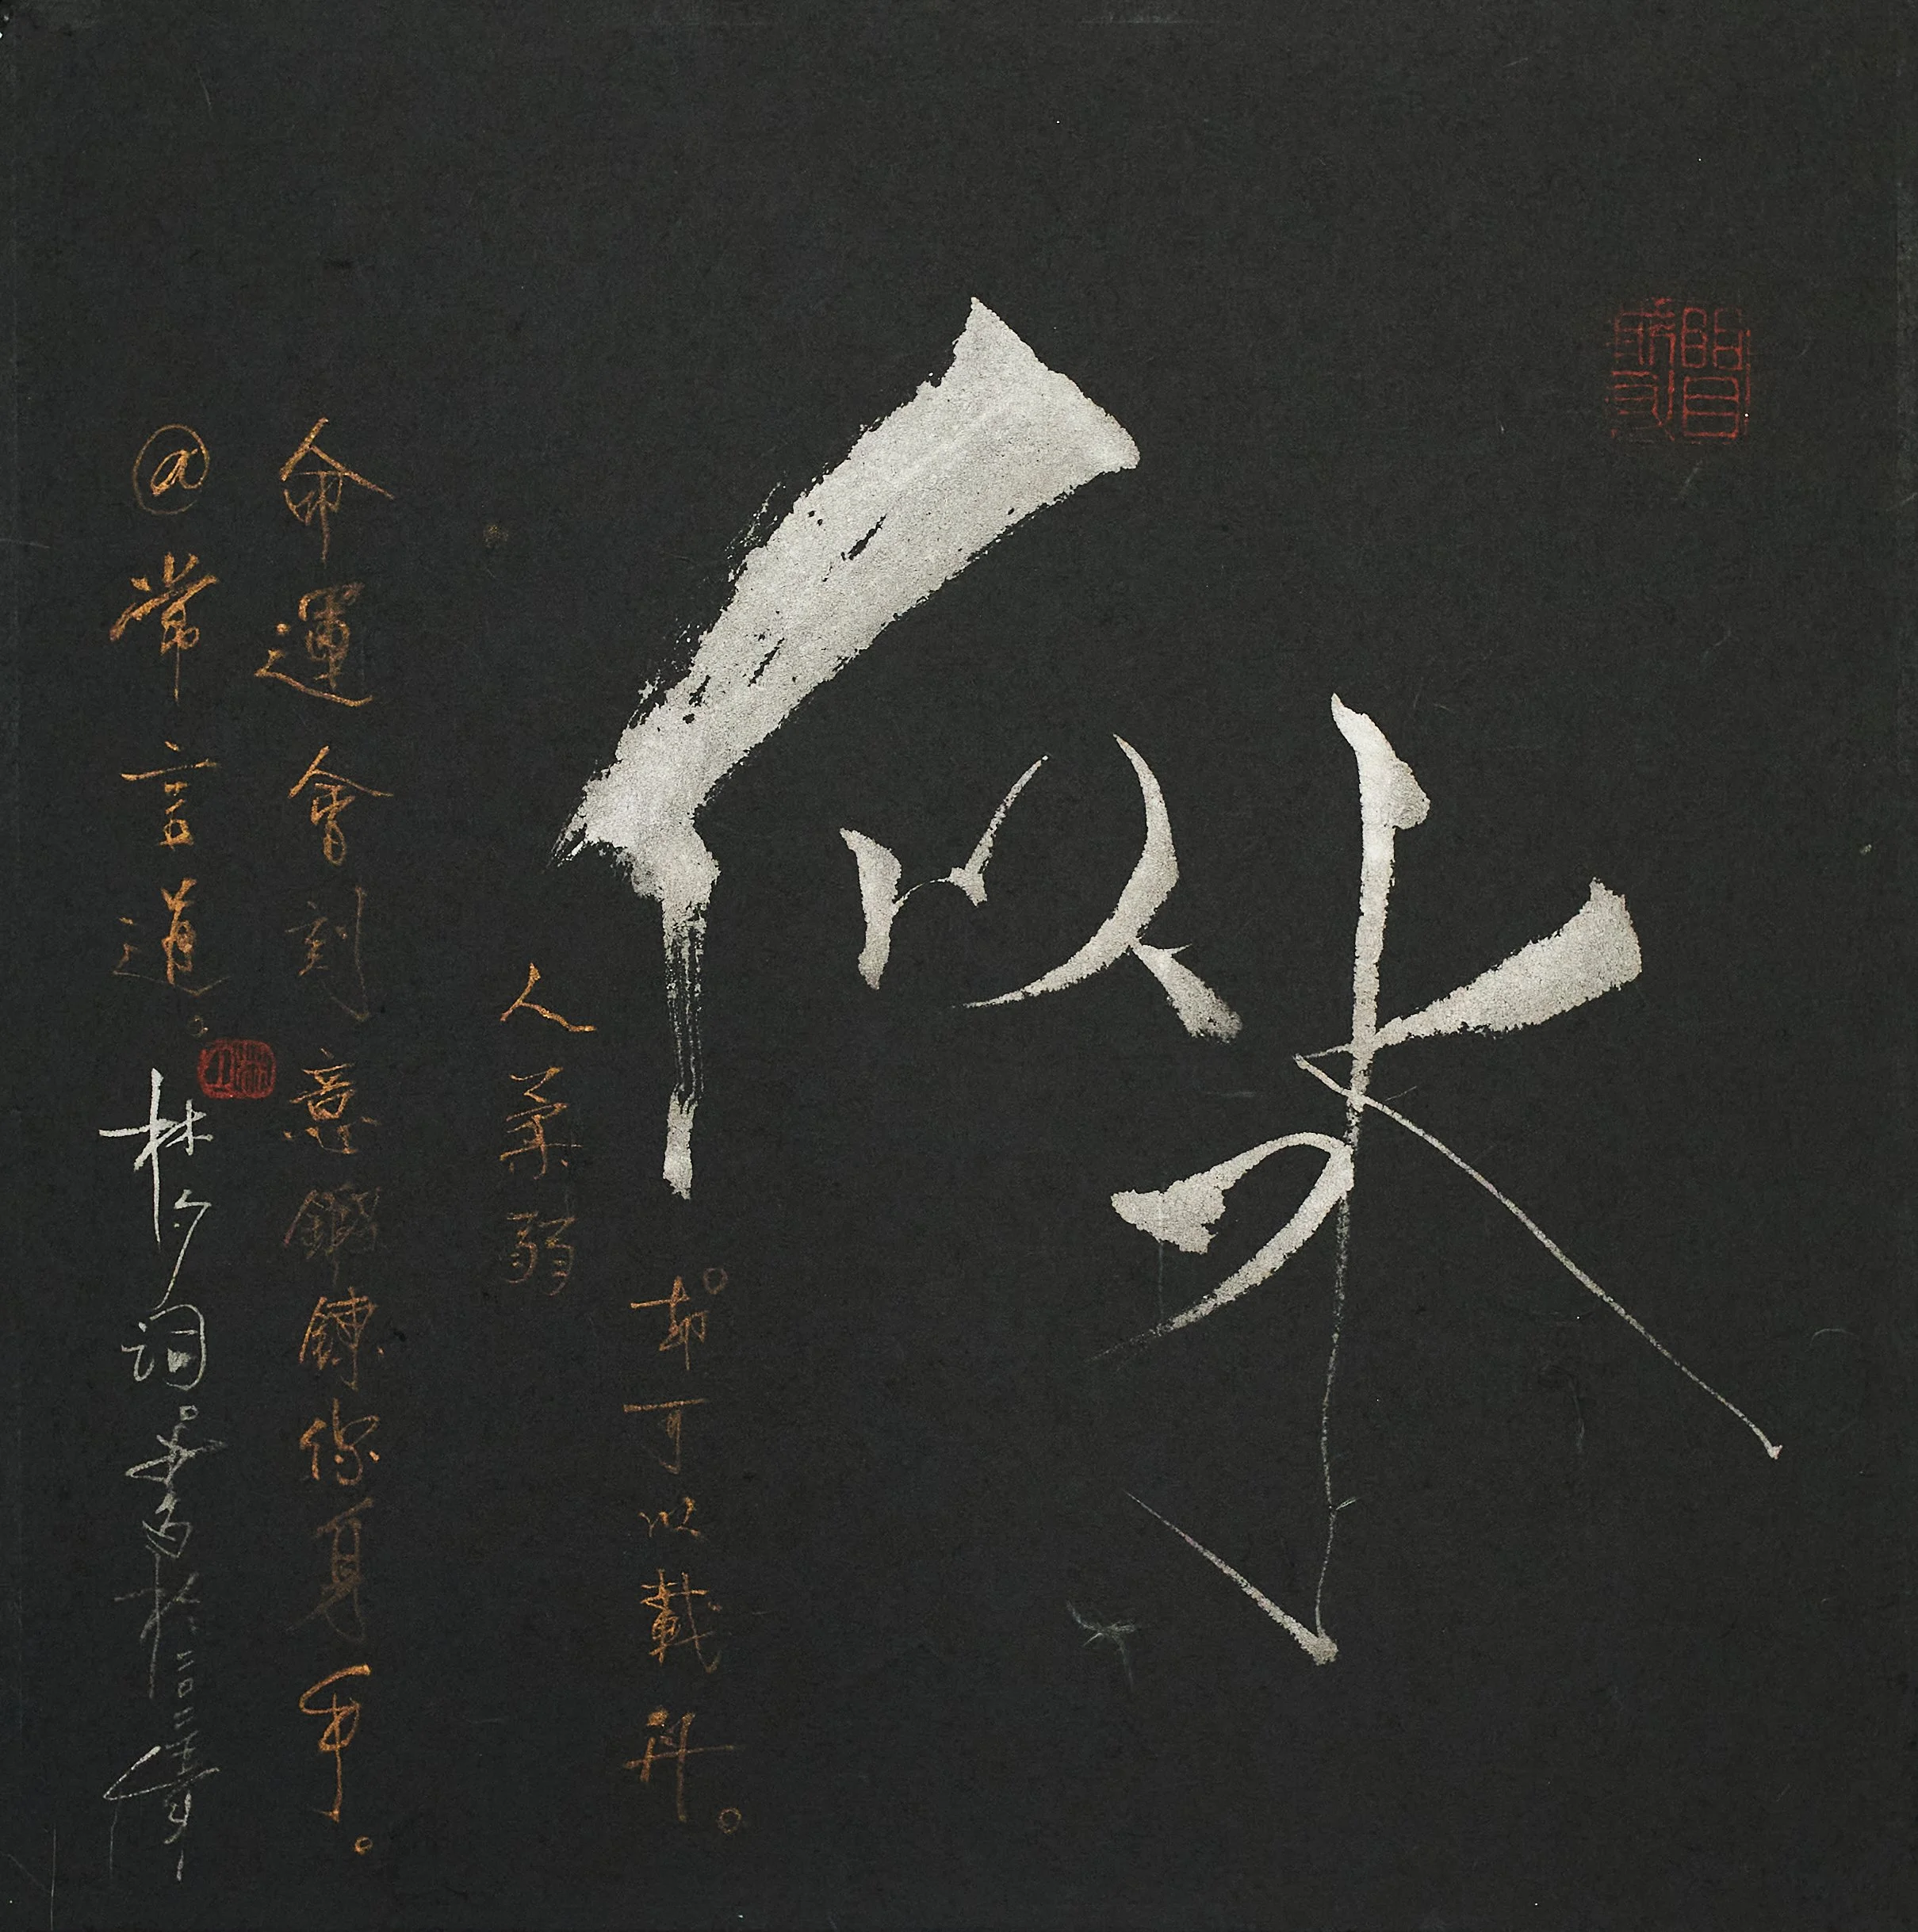 人柔弱
似水
却可以載舟。
命運會刻意鍛鍊你身手。
@常言道。
林夕詞。